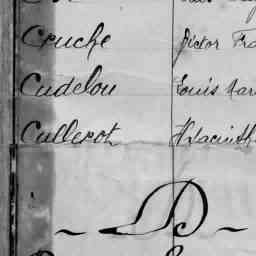 Cruche Victor Fra
Cudelou Louis Mar
Cullerot Hyacinth
~ D ~